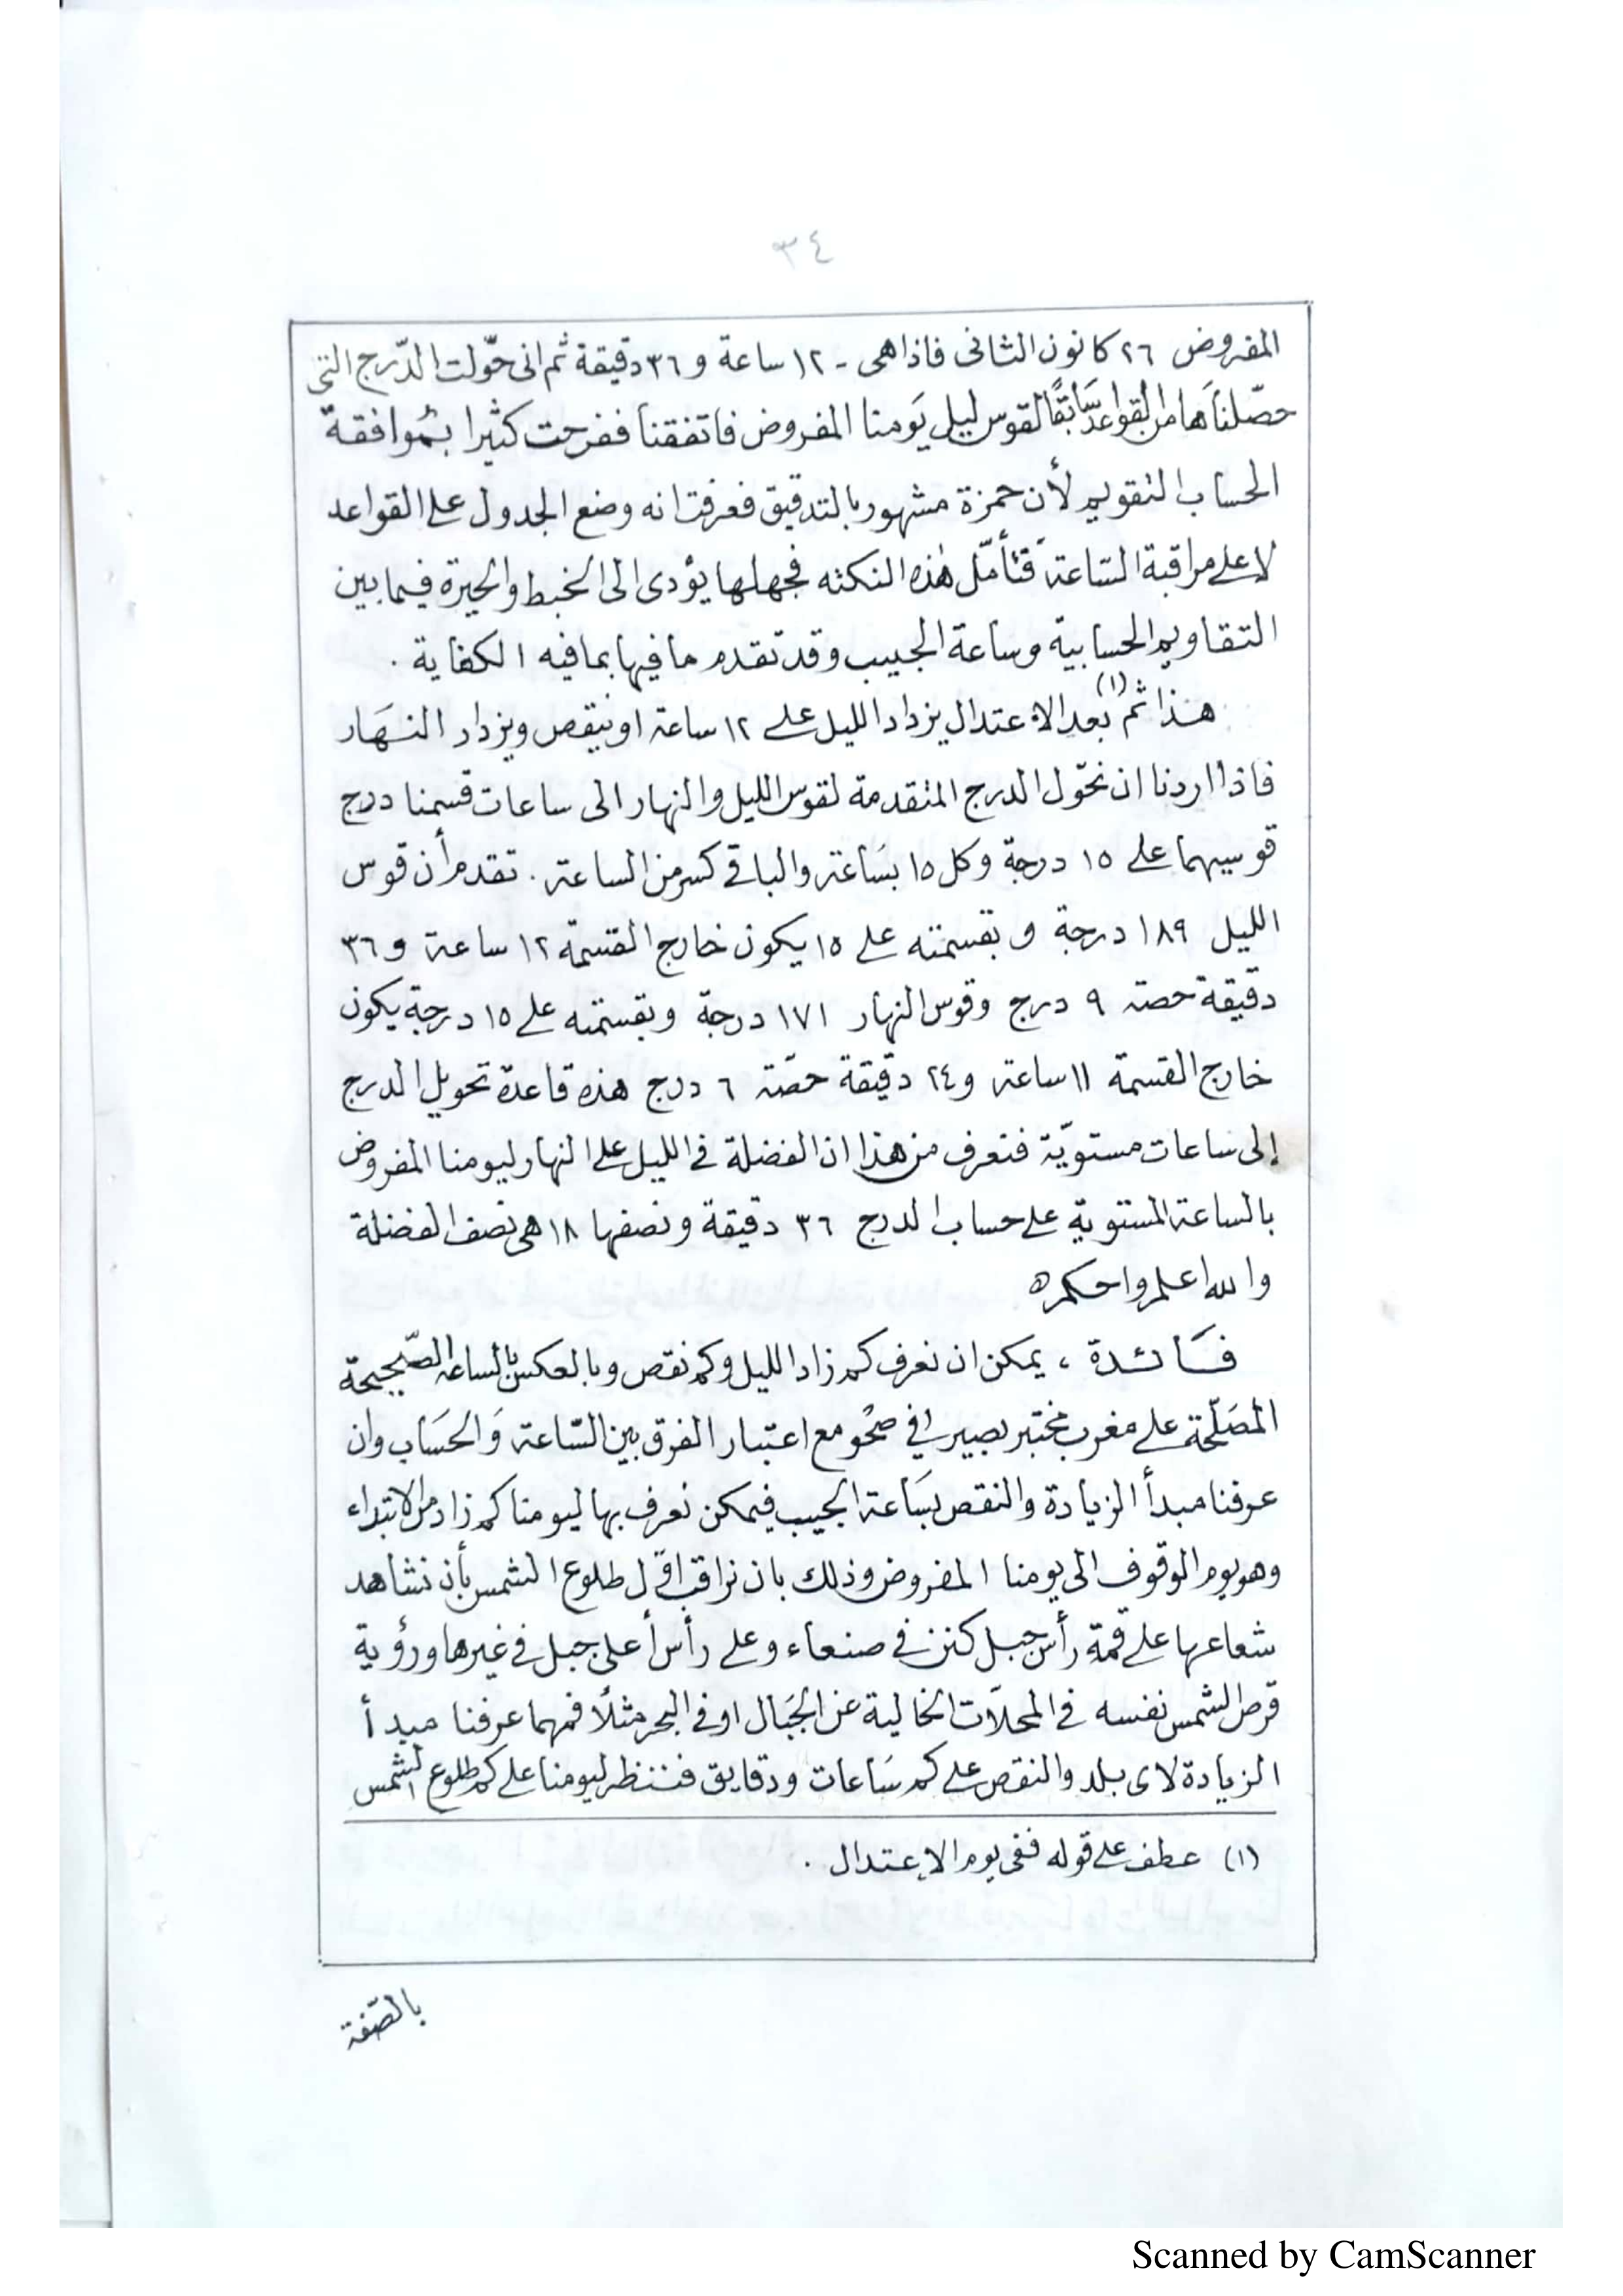 ٣٤
المفروض ٢٦ كانون الثانى فاذا هى - ١٢ ساعة و ٣٦ دقيقة ثم انى حّولت الدّرج التى
حصّلناها من القواعد سَابقًا لقوس ليل يَومنا المفروض فاتفقنا ففرحت كثيرا بمُوافقة
الحساب التقويم لأن حمزة مشهور بالتدقيق فعرفت انه وضع الجدول على القواعد
لا على مراقبة السّاعة فتأمّل هٰذه النكته فجهلها يؤدى الى الخبط والحيرة فيما بين
التقاويم الحسابية وساعة الجيب وقد تقدم ما فيها بما فيه الكفاية .
هذا ثم (١) بعد الاعتدال يزداد الليل على ١٢ ساعة او ينقص ويزداد النهَار
فاذا اردنا ان نحّول الدرج المتقدمة لقوس الليل والنهار الى ساعات قسمنا درج
قوسيهما على ١٥ درجة وكل ١٥ بسَاعة والباقى كسر من الساعة . تقدم أن قوس
الليل ١٨٩ درجة وبقسمته على ١٥ يكون خارج القسمة ١٢ ساعة و ٣٦
دقيقة حصة ٩ درج وقوس النهار ١٧١ درجة وبقسمته على ١٥ درجة يكون
خارج القسمة ١١ ساعة و ٢٤ دقيقة حصّة ٦ درج هذه قاعدة تحويل الدرج
إلى ساعات مستويّة فنعرف من هذا ان الفضلة فى الليل على النهار ليومنا المفروض
بالساعة المستوية على حساب الدرج ٣٦ دقيقة ونصفها ١٨ هى نصف الفضلة
والله اعلم واحكم ه
فَائدة ، يمكن ان نعرف كم زاد الليل وكم نقص وبالعكس بالساعة الصّحيحة
المصَلّحة على مغرب مختبر بصير فى صحْو مع اعتبار الفرق بين السّاعة وَالحسَاب وان
عرفنا مبدأ الزيادة والنقص بسَاعة الجيب فيمكن نعرف بها ليومنا كم زاد من الابتداء
وهو يوم الوقوف الى يومنا المفروض وذلك بان نراقب اوّل طلوع الشمس بأن نشاهد
شعاعها على قمة رأس جبل كنن فى صنعاء وعلى رأس أعلى جبل فى غيرها ورؤية
قرص الشمس نفسه فى المحلاّت الخالية عن الجبَال او فى البحر مثلًا فمهما عرفنا مبدأ
الزيادة لاى بلد والنقص على كم سَاعات ودقايق فننظر ليومنا على كم طلوع الشمس
(١) عطف على قوله ففى يوم الإعتدال .
بالصّفة
Scanned by CamScanner